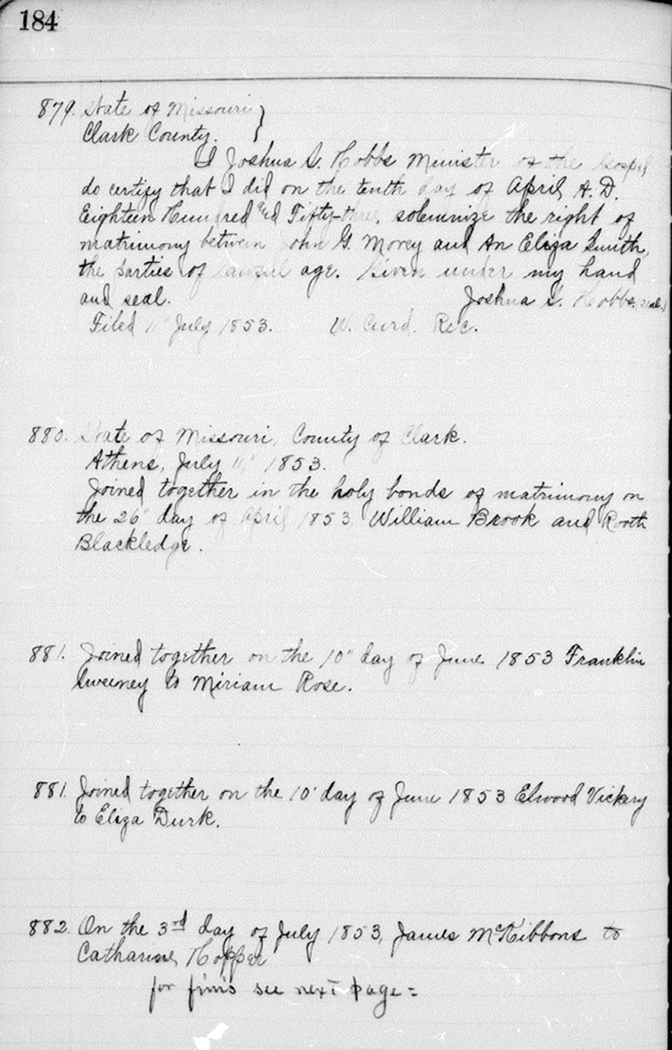 184
879. State of Missouri }
Clark County.
I Joshua G. Hobbs Minister of the Gospel
do certify that I did on the tenth day of April A.D.
Eighteen Hundred and Fifty-three, solemnize the right of
matrimony between John G. Morey and An Eliza Smith,
the parties of lawful age. Given under my hand
and seal. Joshua G. Hobbs (seal)
Filed 11" July 1853. W. Curd. Rec.
880. State of Missouri, County of Clark.
Athens, July 11" 1853.
Joined together in the holy bonds of matrimony on
the 26" day of April 1853. William Brook and Rooth
Blackledge.
881. Joined together on the 10" day of June 1853 Franklin
Sweeney to Miriam Rose.
881. Joined together on the 10" day of June 1853 Elwood Vickery
to Eliza Durk.
882. On the 3rd day of July 1853, James McKibbons to
Catharine Hopper
for finis see next page =